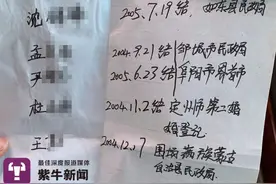 沈
2005.7.19结 如东县民政局
孟
2004.9.21结 邹城市民政局
尹
2005.6.23结 阜阳市界首市
杜
2004.11.2结 定州市第二婚
姻登记
王
2004.12.17 围场满族蒙古
自治县民政局
最佳深度报道媒体
紫牛新闻